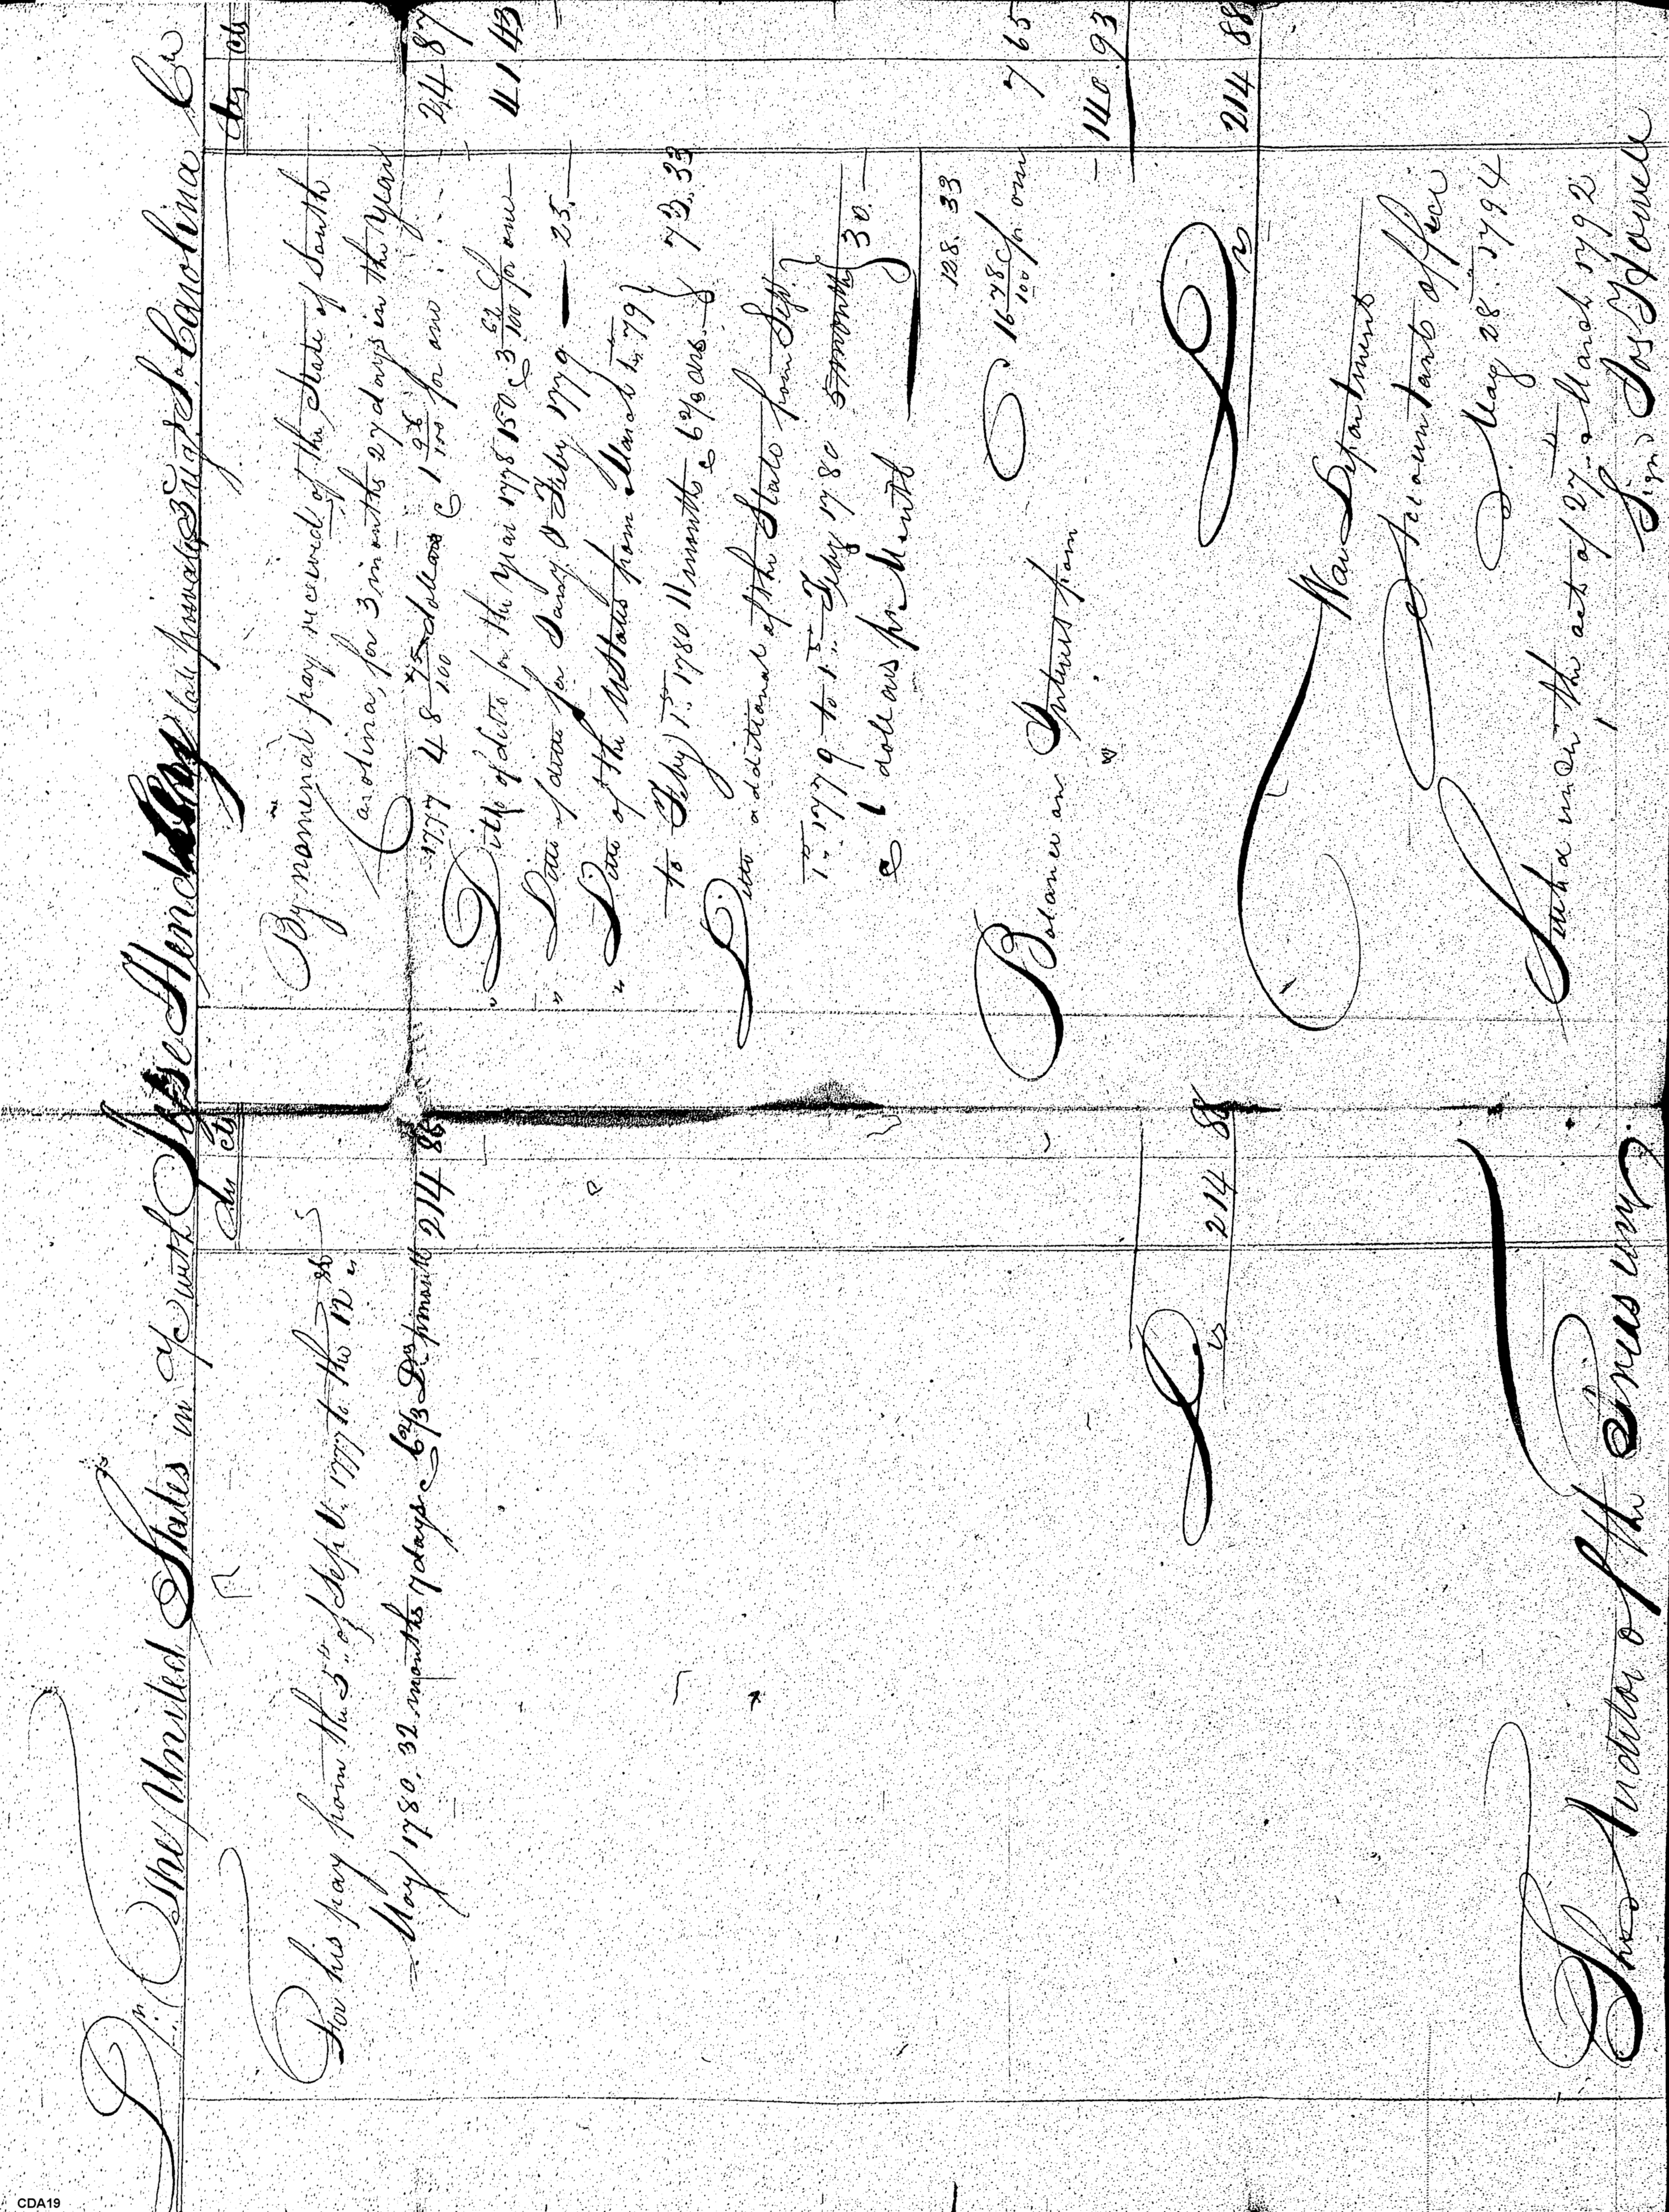 Dr The United States in a/c with Jesse Hendley late private 3rd Regt S. Carolina Cr
Drs cts
For his pay from the 5th of Sept. 1777 to the 12th
May 1780. 32 months 7 days @ 6 2/3 Drs pr month 214 88
Drs 214 88
The Auditor of the Treasury
Drs cts
By nominal pay received of the State of South
Carolina, for 3 months 27 days in the Year
1777 48 75/100 dollars @ 1 96/100 for one 24 87
" Ditto of ditto for the Year 1778 150 @ 3 62/100 for one 41 43
" Ditto of ditto for Jany & Feby 1779 25.
" Ditto of the U States from March 1st 79
to Feby 1st 1780 11 months @ 6 2/3 drs 73. 33
Ditto additional of the State from Sept.
1st 1779 to 1st Feby 1780 5 months
@ 6 dollars pr Month 30.
128. 33
@ 16 78/100 for one 7 65
Balance on Interest from 140. 93
Drs 214 88
War Department
Accountants office
May 28th 1794
Under the act of 27th March 1792
Signd Jos Howell
CDA19